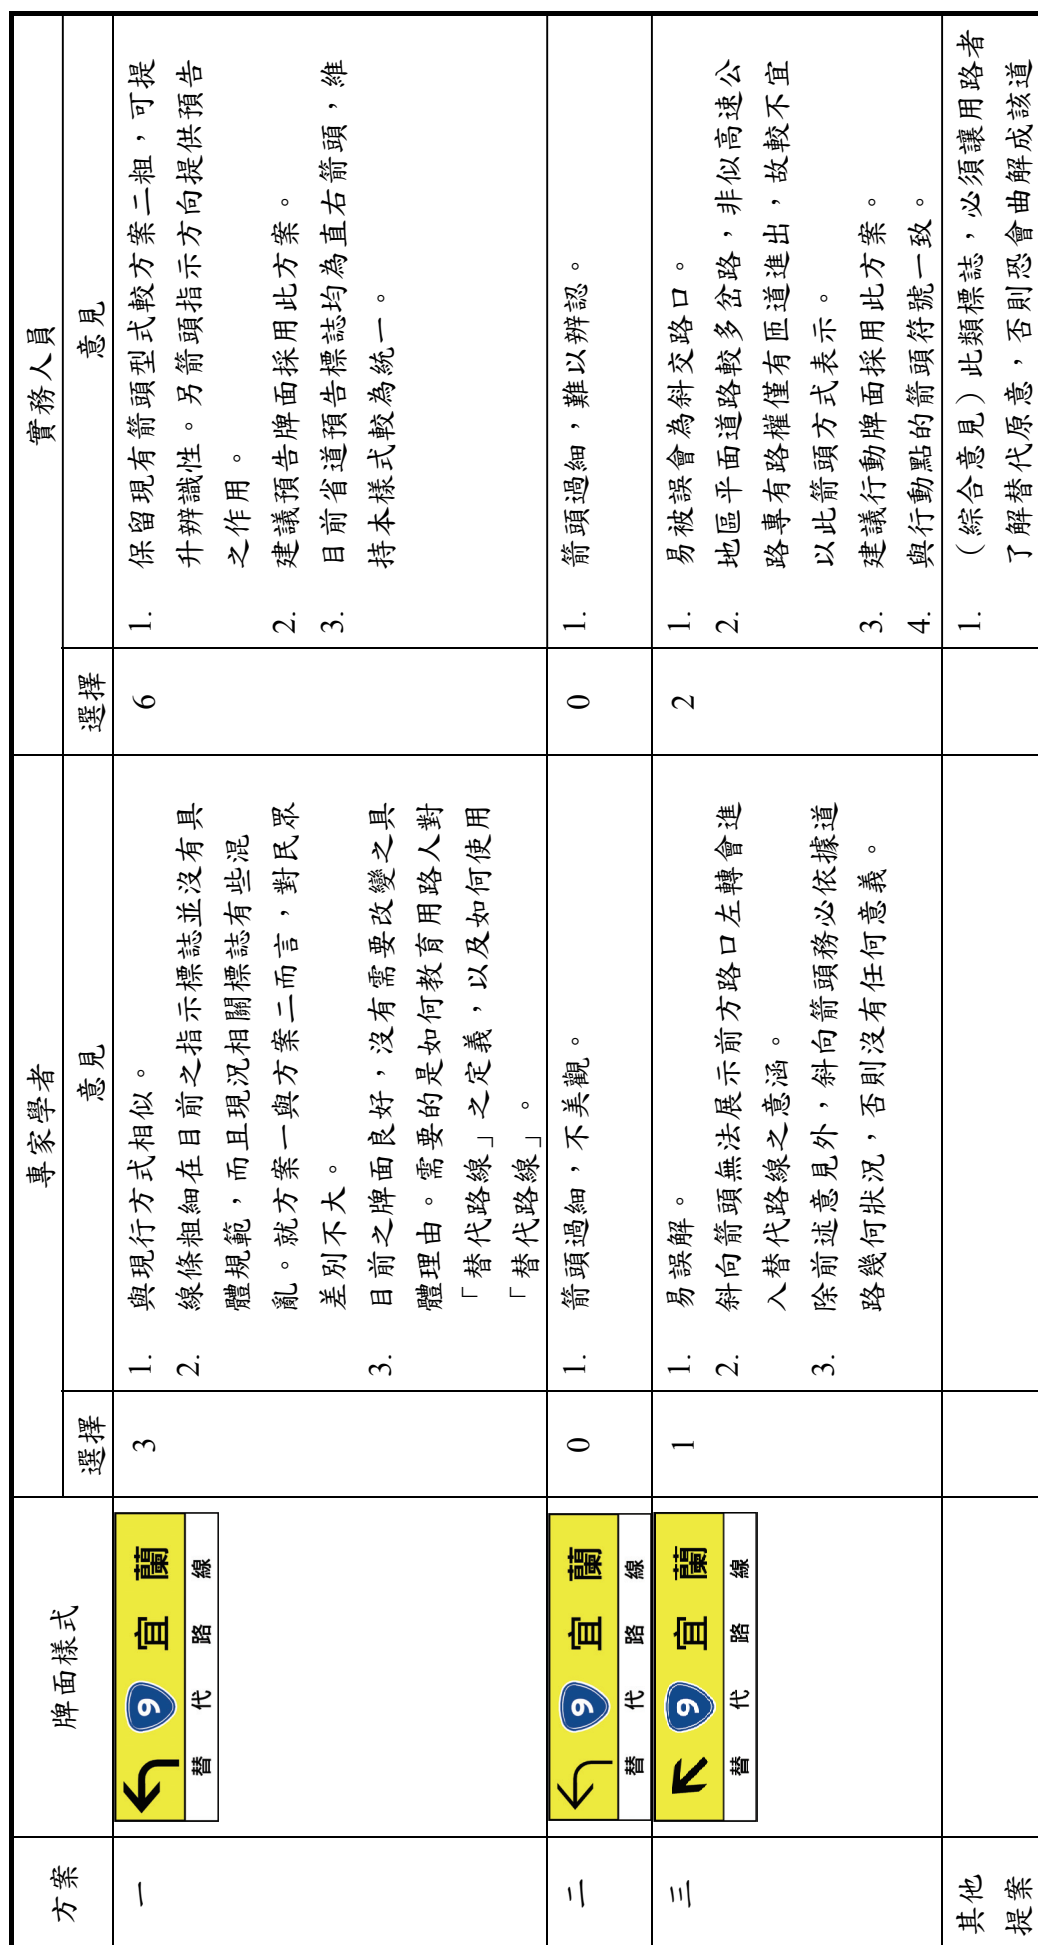 方案
牌面樣式
專家學者
實務人員
選擇
意見
選擇
意見
一
9 宜蘭
替代路線
3
1. 與現行方式相似。
2. 線條粗細在目前之指示標誌並沒有具
體規範，而且現況相關標誌有些混
亂。就方案一與方案二而言，對民眾
差別不大。
3. 目前之牌面良好，沒有需要改變之具
體理由。需要的是如何教育用路人對
「替代路線」之定義，以及如何使用
「替代路線」。
6
1. 保留現有箭頭型式較方案二粗，可提
升辨識性。另箭頭指示方向提供預告
之作用。
2. 建議預告牌面採用此方案。
3. 目前省道預告標誌均為直右箭頭，維
持本樣式較為統一。
二
9 宜蘭
替代路線
0
1. 箭頭過細，不美觀。
0
1. 箭頭過細，難以辨認。
三
9 宜蘭
替代路線
1
1. 易誤解。
2. 斜向箭頭無法展示前方路口左轉會進
入替代路線之意涵。
3. 除前述意見外，斜向箭頭務必依據道
路幾何狀況，否則沒有任何意義。
2
1. 易被誤會為斜交路口。
2. 地區平面道路較多岔路，非似高速公
路專有路權僅有匝道進出，故較不宜
以此箭頭方式表示。
3. 建議行動牌面採用此方案。
4. 與行動點的箭頭符號一致。
其他
提案
1. （綜合意見）此類標誌，必須讓用路者
了解替代原意，否則恐會曲解成該道